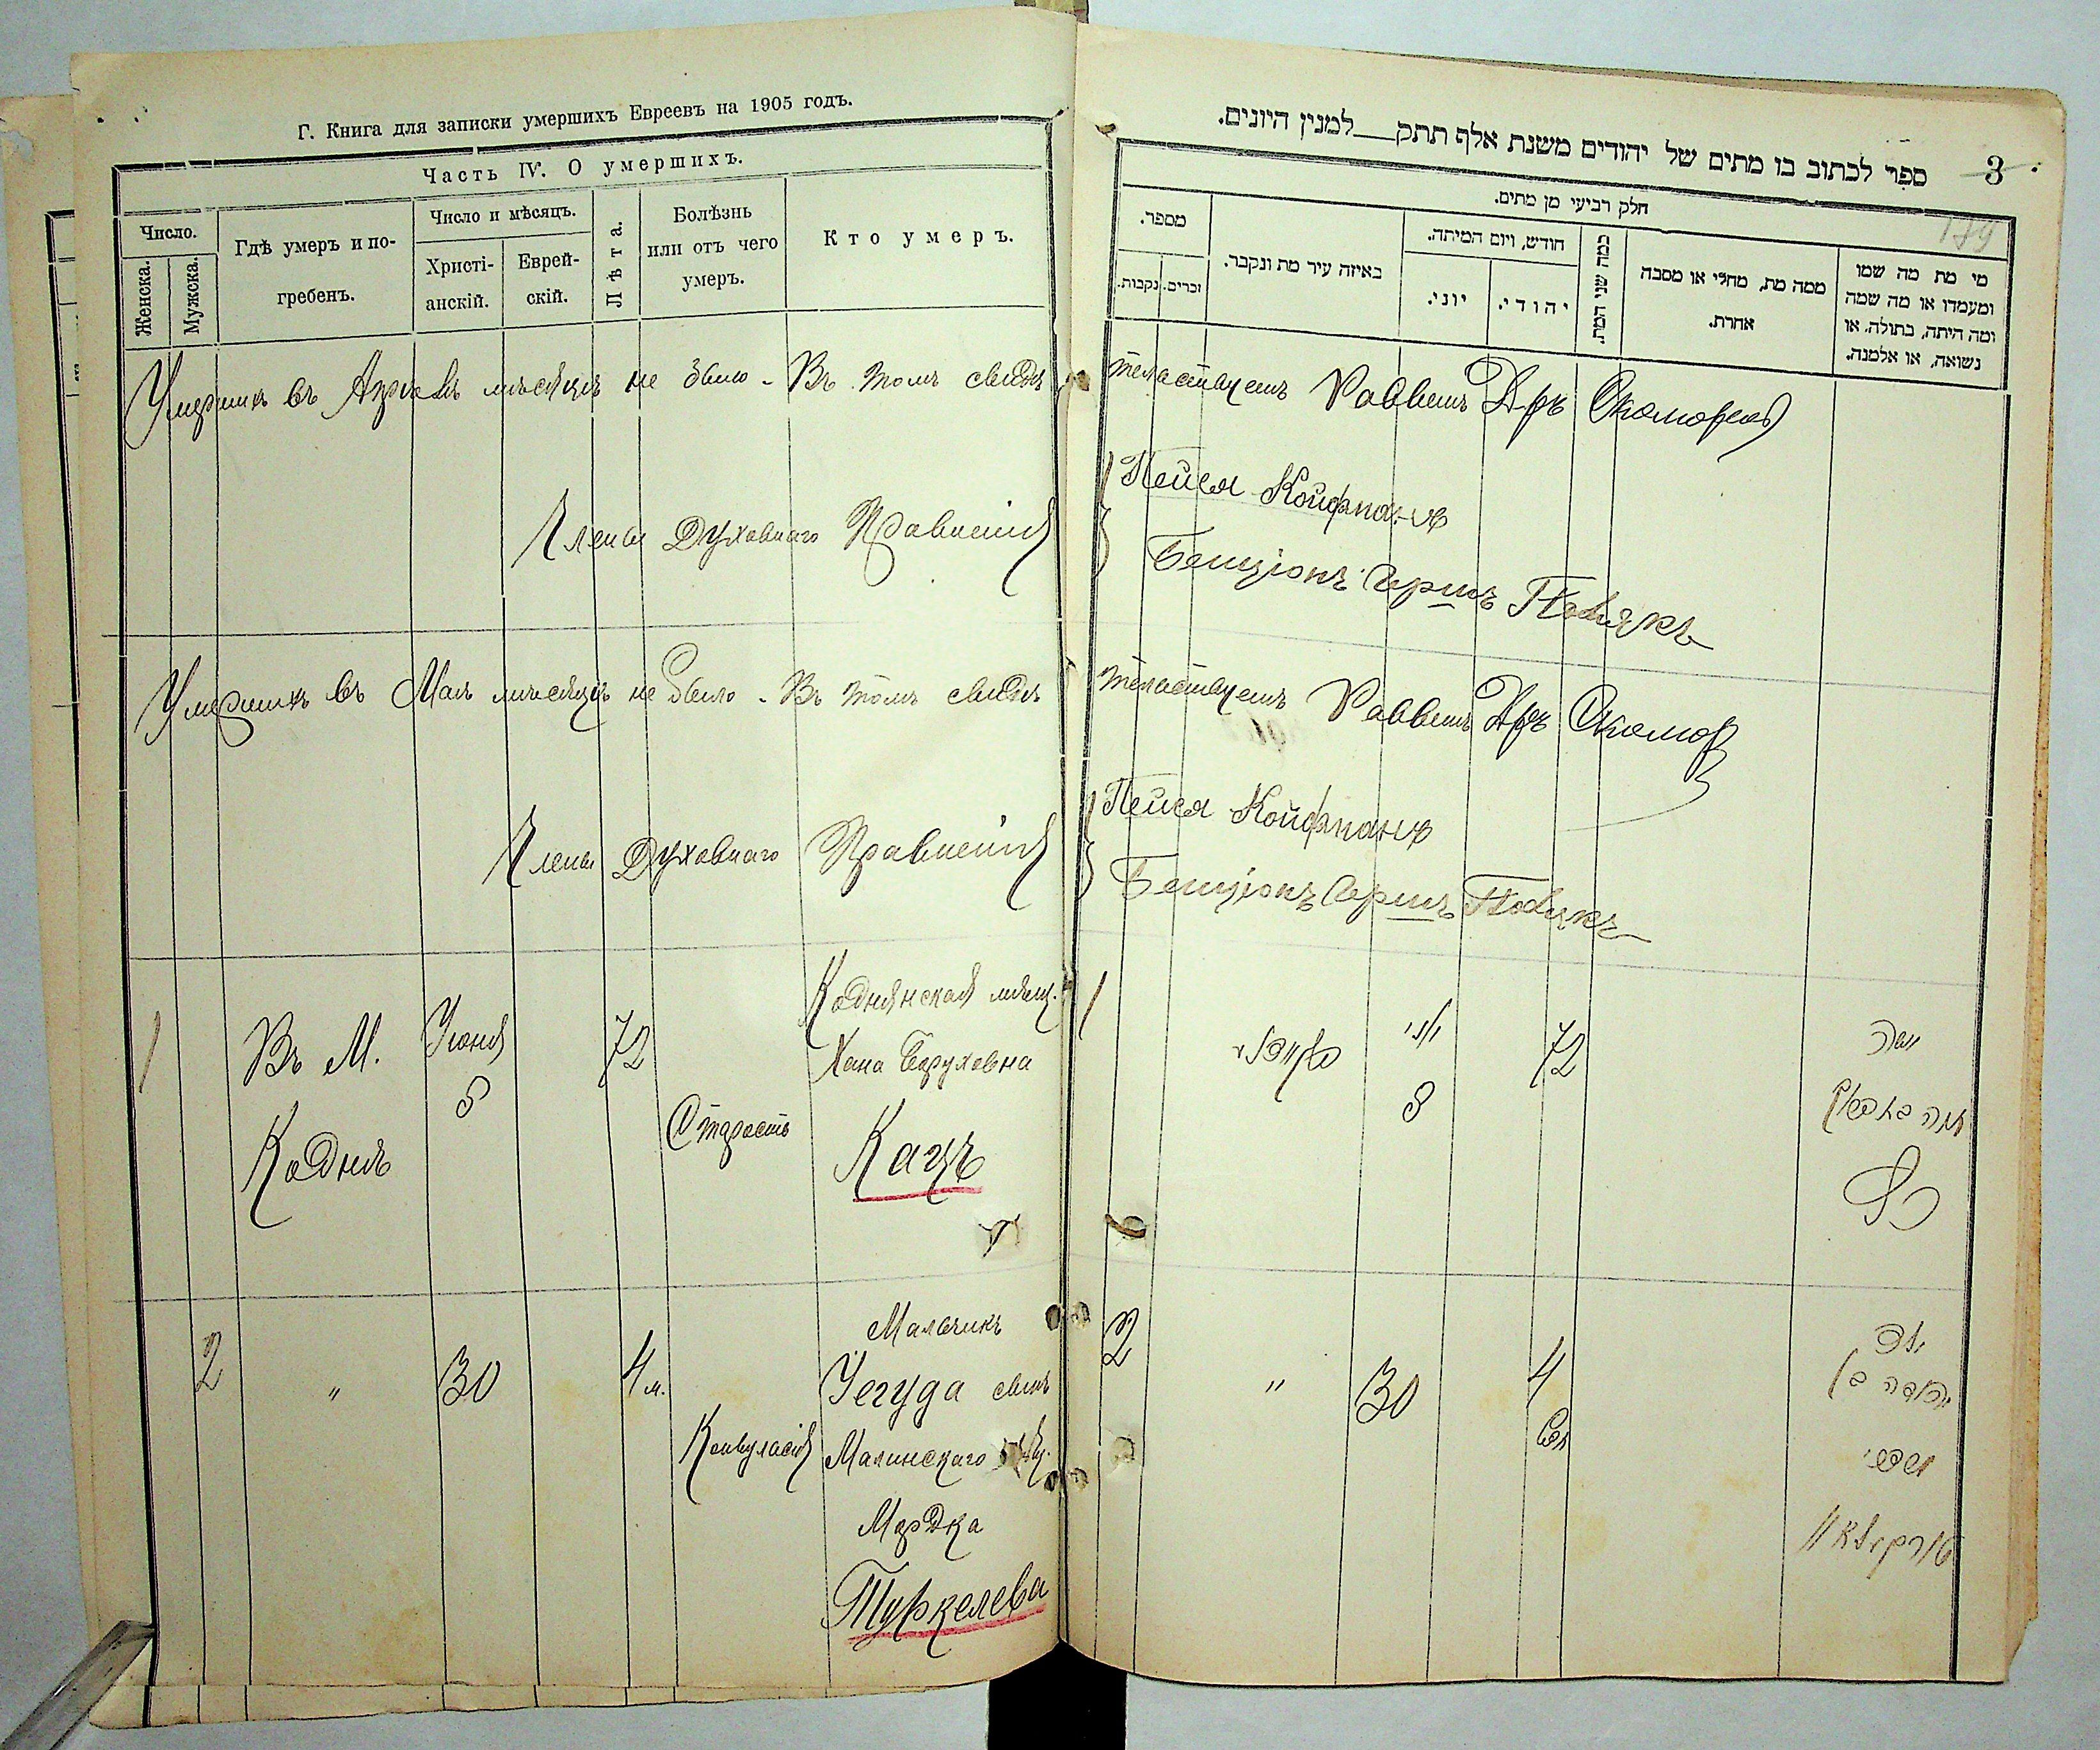 Г. Книга для записки умершихъ Евреевъ на 1905 годъ.
Часть IV. О умершихъ.
Число.
Женска.
Мужска.
Гдѣ умеръ и по-
гребенъ.
Число и мѣсяцъ.
Христі-
анскій.
Еврей-
скій.
Лѣта.
Болѣзнь
или отъ чего
умеръ.
Кто умеръ.
Умершихъ въ Апрель мѣсяцѣ не было - Въ томъ свидѣ
Члены Духовнаго Правленія
Умершихъ въ Маѣ мѣсяцѣ не было - Въ томъ свидѣ
Члены Духовнаго Правленія
1
Въ М.
Кодня
Іюня
8
72
Старость
Коднянская мѣщ.
Хана Боруховна
Кацъ
2
"
30
4 м.
Мальчикъ
Іегуда сынъ
Малинскаго
Мордка
Туркелева
ספר לכתוב בו מתים של יהודים משנת אלף תתק למנין היונים.
3
179
חלק רביעי מן מתים.
מספר.
זכרים.
נקבות.
באיזה עיר מת ונקבר.
חודש, ויום המיתה.
יוני.
יהודי.
כמה שני המת.
ממה מת, מחלי או מסבה
אחרת.
מי מת מה שמו
ומעמדו או מה שמה
ומה היתה, בתולה, או
נשואה, או אלמנה.
тельствуетъ Раввинъ Д-ръ Скоморовъ
Пейся Койфманъ
Бенціонъ Гершъ Полякъ
тельствуетъ Раввинъ Д-ръ Скомор
Пейся Койфманъ
Бенціонъ Гершъ Полякъ
1
יוני
8
72
כץ
2
"
30
4
ילד
יהודה בן